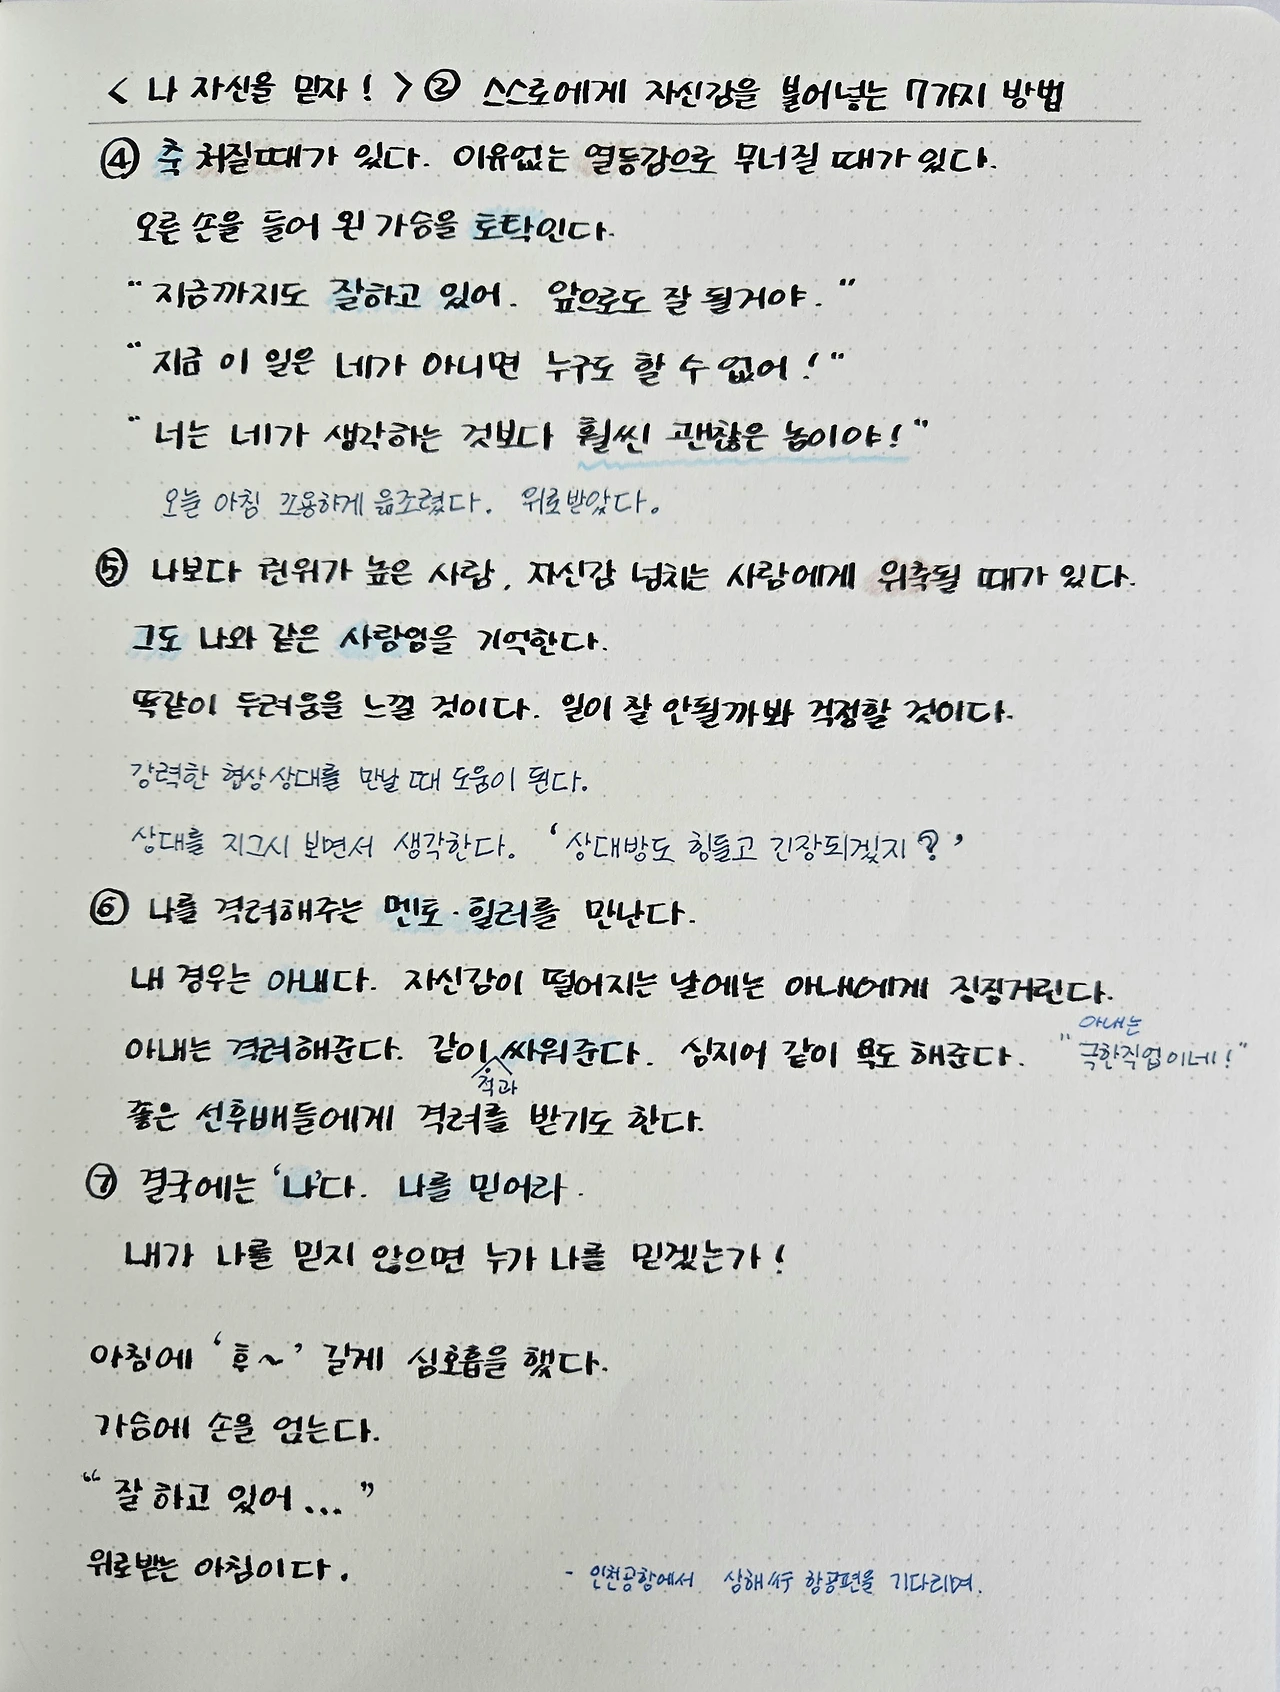 < 나 자신을 믿자! > ② 스스로에게 자신감을 불어넣는 7가지 방법
④ 축 처질때가 있다. 이유없는 열등감으로 무너질 때가 있다.
오른 손을 들어 왼 가슴을 토탁인다.
"지금까지도 잘하고 있어. 앞으로도 잘 될거야."
"지금 이 일은 네가 아니면 누구도 할 수 없어!"
"너는 네가 생각하는 것보다 훨씬 괜찮은 놈이야!"
오늘 아침 조용하게 읊조렸다. 위로받았다.
⑤ 나보다 권위가 높은 사람, 자신감 넘치는 사람에게 위축될 때가 있다.
그도 나와 같은 사람임을 기억한다.
똑같이 두려움을 느낄 것이다. 일이 잘 안될까봐 걱정할 것이다.
강력한 협상상대를 만날 때 도움이 된다.
상대를 지그시 보면서 생각한다. '상대방도 힘들고 긴장되겠지?'
⑥ 나를 격려해주는 멘토·힐러를 만난다.
내 경우는 아내다. 자신감이 떨어지는 날에는 아내에게 징징거린다.
아내는 격려해준다. 같이 싸워준다. 심지어 같이 욕도 해준다. "아내는
극한직업이네!"
적과
좋은 선후배들에게 격려를 받기도 한다.
⑦ 결국에는 '나'다. 나를 믿어라.
내가 나를 믿지 않으면 누가 나를 믿겠는가!
아침에 '후~' 길게 심호흡을 했다.
가슴에 손을 얹는다.
"잘 하고 있어..."
위로받는 아침이다.
- 인천공항에서 상해行 항공편을 기다리며.